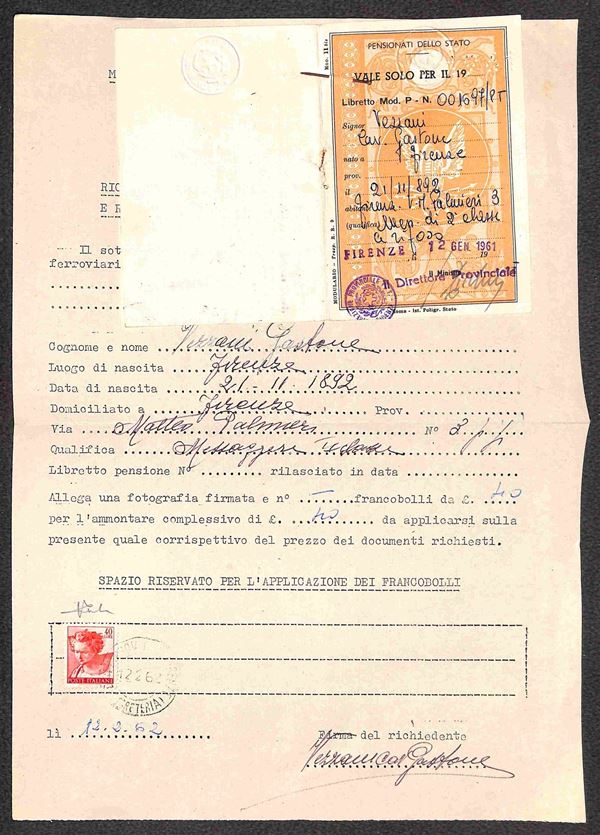 M
RIC
E R
Il sot
ferroviari
Mod. 11 bis
MODULARIO - Prograf. R. R. 9
PENSIONATI DELLO STATO
VALE SOLO PER IL 19
Libretto Mod. P - N. 001697/PT
Signor Vezzani
Cav. Gastone
nato a Firenze
prov.
il 21/11/892
abit. Firenze V. M. Palmieri 3
(qualifica) Mess. di 2ª classe
a riposo
FIRENZE 12 GEN. 1961
19
Il Ministro
Il Direttore Provinciale
Roma - Ist. Poligr. Stato
Cognome e nome Vezzani Gastone
Luogo di nascita Firenze
Data di nascita 21-11-1892
Domiciliato a Firenze Prov.
Via Matteo Palmieri N° 3
Qualifica Messaggere
Libretto pensione N° rilasciato in data
Allega una fotografia firmata e n° francobolli da £. 40
per l'ammontare complessivo di £. 40 da applicarsi sulla
presente quale corrispettivo del prezzo dei documenti richiesti.
SPAZIO RISERVATO PER L'APPLICAZIONE DEI FRANCOBOLLI
40
POSTE ITALIANE
12 2 62
SEGRETERIA
lì 12.2.62
Firma del richiedente
Vezzani Cav Gastone